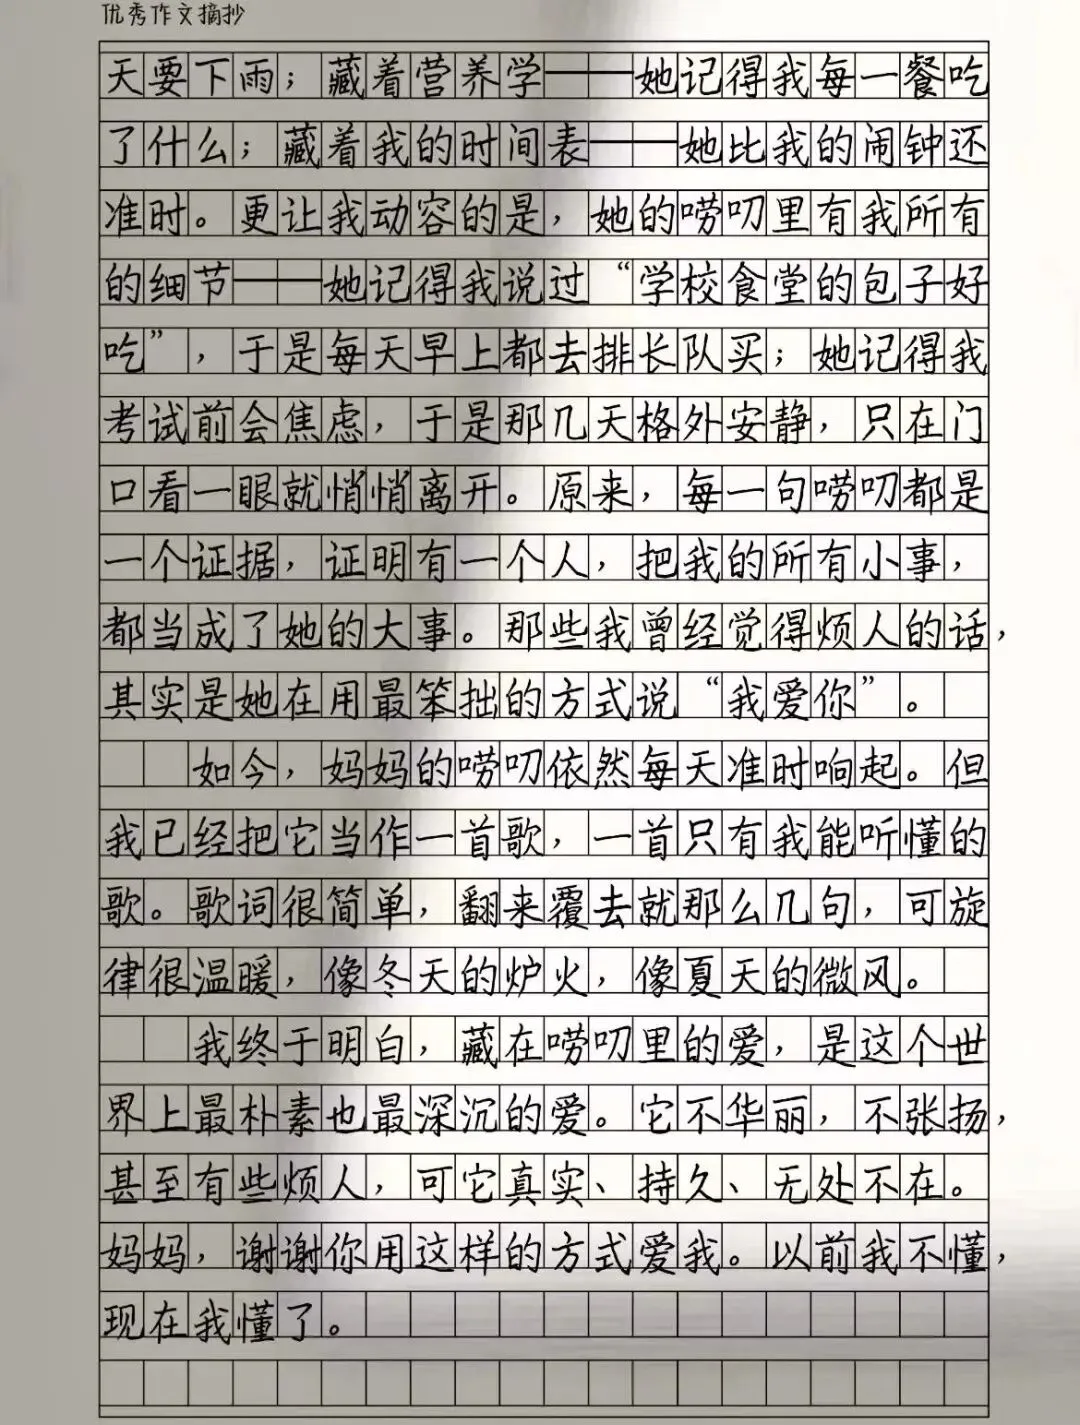 优秀作文摘抄
天要下雨；藏着营养学——她记得我每一餐吃
了什么；藏着我的时间表——她比我的闹钟还
准时。更让我动容的是，她的唠叨里有我所有
的细节——她记得我说过“学校食堂的包子好
吃”，于是每天早上都去排长队买；她记得我
考试前会焦虑，于是那几天格外安静，只在门
口看一眼就悄悄离开。原来，每一句唠叨都是
一个证据，证明有一个人，把我的所有小事，
都当成了她的大事。那些我曾经觉得烦人的话，
其实是她在用最笨拙的方式说“我爱你”。
如今，妈妈的唠叨依然每天准时响起。但
我已经把它当作一首歌，一首只有我能听懂的
歌。歌词很简单，翻来覆去就那么几句，可旋
律很温暖，像冬天的炉火，像夏天的微风。
我终于明白，藏在唠叨里的爱，是这个世
界上最朴素也最深沉的爱。它不华丽，不张扬，
甚至有些烦人，可它真实、持久、无处不在。
妈妈，谢谢你用这样的方式爱我。以前我不懂，
现在我懂了。